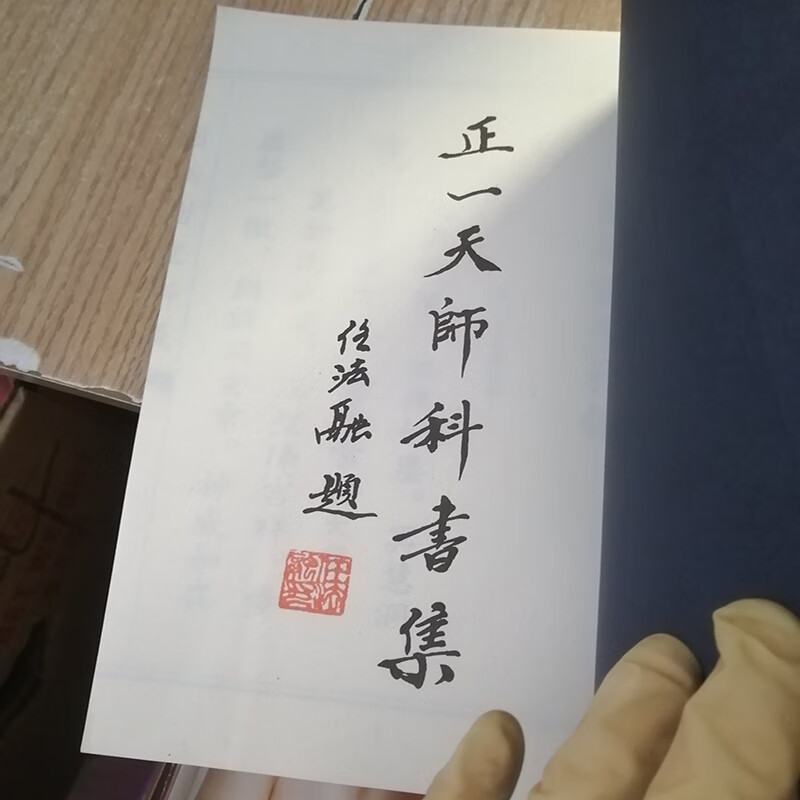 正一天師科書集
任法融題